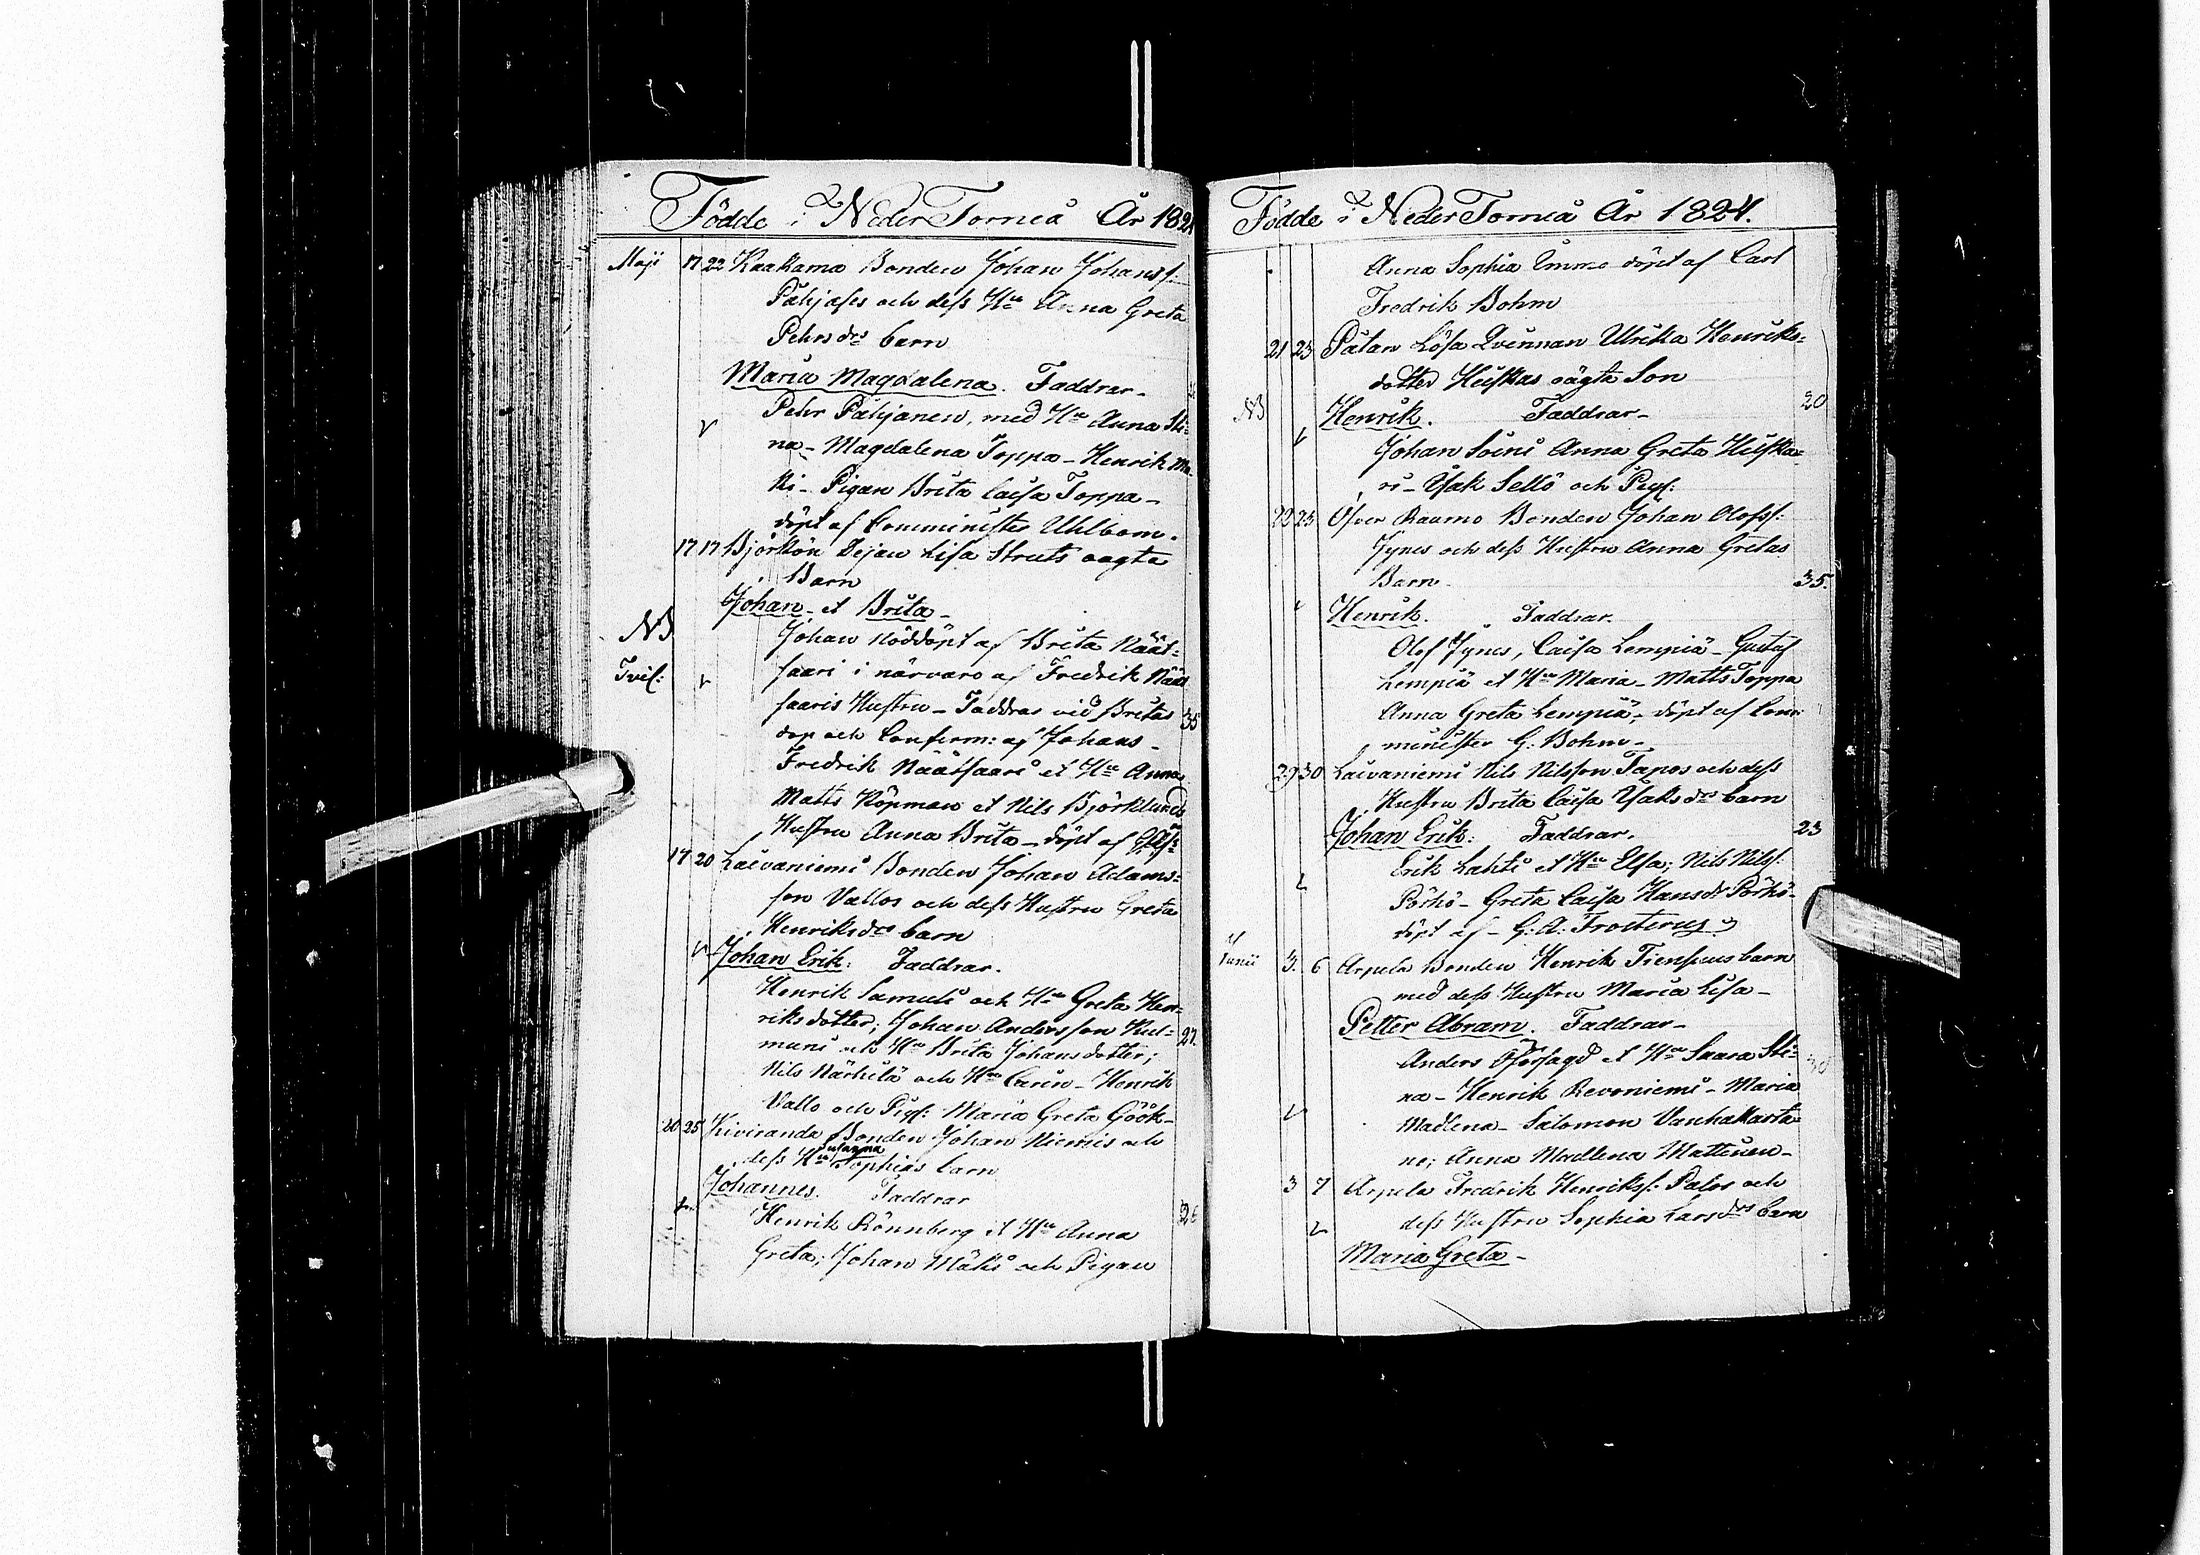 Födde i Neder Torneå År 1824
Maji 17 22 Kaakama Bonden Johan Johanss:
Pahjases och dess Hu Anna Greta
Pehrsdrs barn
Maria Magdalena. Faddrar-
Pehr Pahjanen, med Hu Anna Sti=
na - Magdalena Toppa - Henrik Mä-
ki - Pigan Brita Caisa Toppa -
döpt af Comminister Uhlbom.
17 17 Björkön Dejan Lisa Struts oägta
Barn
Johan et Brita -
NB Johan nöddöpt af Brita Näät-
Tvil: saari i närvaro af Fredrik Näät
saaris Hustru - Faddrar vid Britas 35
dop och Confirm: af Johans -
Fredrik Näätsaari et Hu Anna
Matts Köpman et Nils Björklunds
Hustru Anna Brita - döpt af
17 20 Laivaniemi Bonden Johan Adams=
son Vallos och dess Hustru Greta
Henriksdrs barn
Johan Erik: Faddrar.
Henrik Samuli och Hu Greta Hen=
riksdotter; Johan Andersson Kul= 27.
muni och Hu Brita Johansdotter;
Nils Närhilä och Hu Carin - Henrik
Vallo och Pig: Maria Greta Göök-
20 25 Kiviranda Bonden Johan Niemis och
dess Hu Susanna Sophias barn
Johannes. Faddrar
Henrik Rönnberg et Hu Anna 26
Greta; Johan Mäki och Pigan
Födde i Neder Torneå År 1824.
Anna Sophia Emmo döpt af Carl
Fredrik Bohm
21 23 Pätan Lösa Qvinnan Ulrika Henriks=
dotter Hiiskas oägta Son
NB Henrik. Faddrar - 20
Johan Soini Anna Greta Hiiska=
ri - Isak Sellö och Pig:
22 23 Öfver Raumo Bonden Johan Olofss:
Jynes och dess Hustru Anna Gretas
Barn 35.
Henrik. Faddrar.
Olof Jynes, Caisa Lempiä - Gustaf
Lempiä et Hu Maria - Matts Toppa
Anna Greta Lempiä - döpt af Com=
minister G: Bohm -
29 30 Laivaniemi Nils Nilsson Tapos och dess
Hustru Brita Caisa Isaksdrs barn
Johan Erik: Faddrar. 23
Erik Lahti et Hu Elsa; Nils Nilss:
Pörhö - Greta Caisa Hansdr Pörhö-
döpt af - G: A: Frosterus
Junii 3. 6 Arpela Bonden Henrik Tiensuus barn
med dess Hustru Maria Lisa -
Petter Abram. Faddrar -
Anders et Hu Saara Sti= 30
na - Henrik Revoniemi - Maria
Madlena - Salomon Vanhakarta
no; Anna Madlena Mattinen -
3 7 Arpela Fredrik Henrikss: Palos och
dess Hustru Sophia Larsdrs barn
Maria Greta -